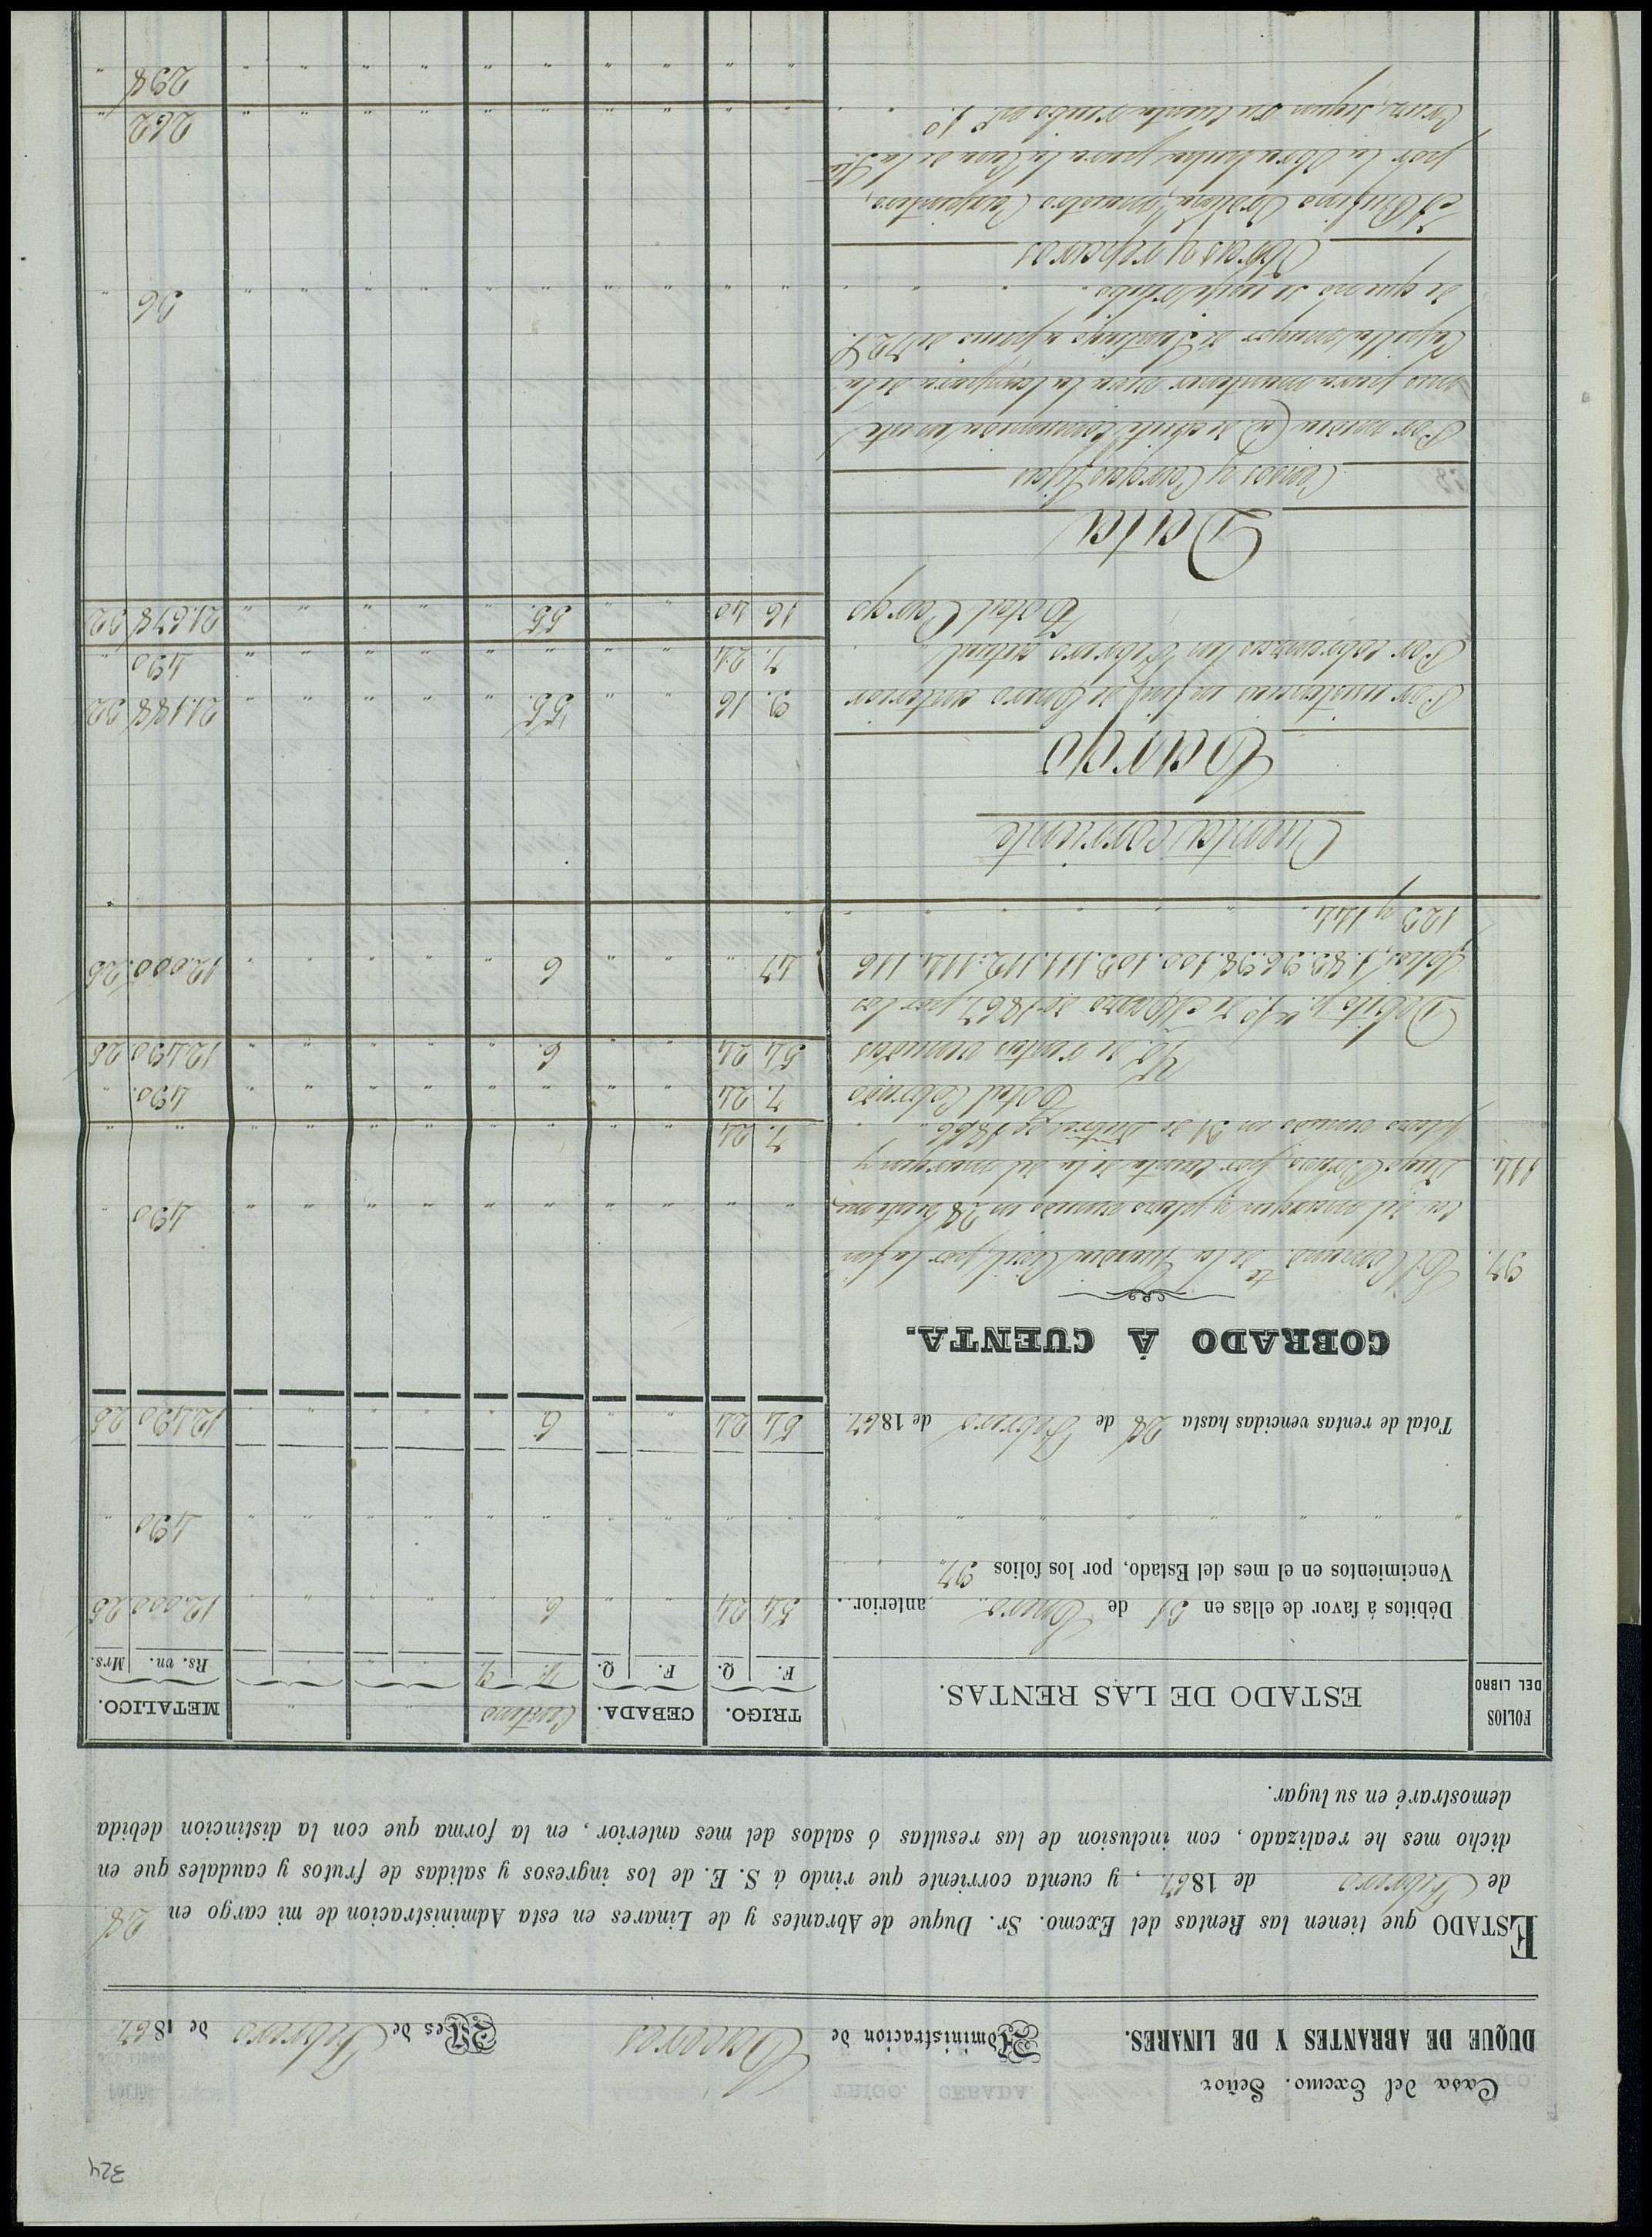 324
Casa del Excmo. Señor
DUQUE DE ABRANTES Y DE LINARES. Administracion de Caceres Mes de Febrero de 1867.
ESTADO que tienen las Rentas del Excmo. Sr. Duque de Abrantes y de Linares en esta Administracion de mi cargo en 28
de Febrero de 1867, y cuenta corriente que rindo á S. E. de los ingresos y salidas de frutos y caudales que en
dicho mes he realizado, con inclusion de las resultas ó saldos del mes anterior, en la forma que con la distincion debida
demostraré en su lugar.
FOLIOS DEL LIBRO ESTADO DE LAS RENTAS. TRIGO. CEBADA. Centeno " " METALICO.
F. Q. F. Q. F. q. Rs. vn. Mrs.
Débitos á favor de ellas en 31 de Enero anterior. 54 24 " " 6 " " " " " 12.000 25
Vencimientos en el mes del Estado, por los folios 97
" " " " " " " " " " 490 "
Total de rentas vencidas hasta 28 de Febrero de 1867. 54 24 " " 6. " " " " " 12.490 25
COBRADO Á CUENTA.
97. El Comand.te de la Guardia Civil, por la fin
ca del margen y plazo vencido en 28 de " " " " " " " " " " 490 "
114. Diego Bravo, por cuenta de la del margen y
plazo vencido en 31 de Dibre. de 1866 7. 24 " " " " " " " " " "
Total Cobrado 7. 24 " " " " " " " " 490. "
Yd. de rentas vencidas 54 24 " " 6. " " " " " 12.490 25
Débito p.a 1.o de Marzo de 1867, por los
folios, 1. 83. 96. 98. 100. 103. 111. 112. 114. 116 47 " " " 6 " " " " " 12.000. 25
123 y 144.
Cuenta corriente
Cargo
Por existencias en fin de Enero anterior 9. 16 " " 55. " " " " " 21.188 32
Por cobranzas en Febrero actual 7. 24 " " " " " " " " 490 "
Total Cargo 16 40 " " 55. " " " " " 21.678 32
Data
Censos y Cargas fijas
Por media @ de aceite consumida en este
mes para mantener viva la lampara de la
Capilla mayor de Santiago a precio de 72 r.
de que no se exije recibo. " " " " " " " " " " 36 "
Obras y reparos
A Rufino Codina, maestro Carpintero,
por la Obra hecha para la Casa de la S.ta
Cruz, segun su cuenta recibo n.o 1.o " " " " " " " " " " 262 "
" " " " " " " " " " 298 "